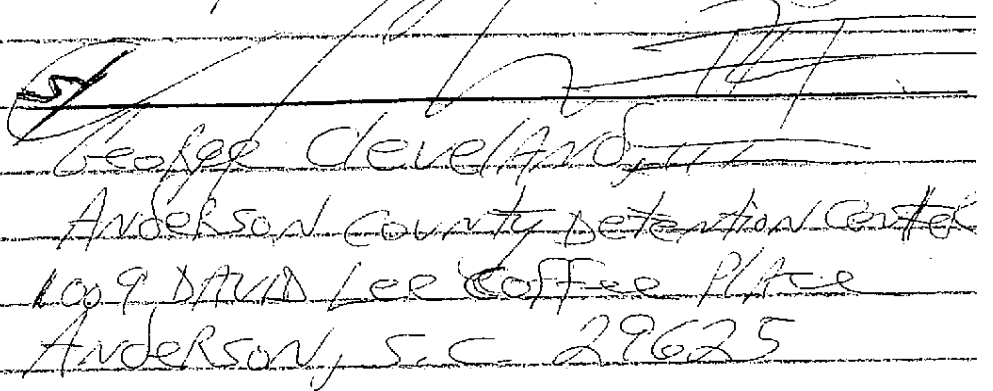 S/
George Cleveland, III
Anderson County Detention Center
1009 David Lee Coffee Place
Anderson, S.C. 29625